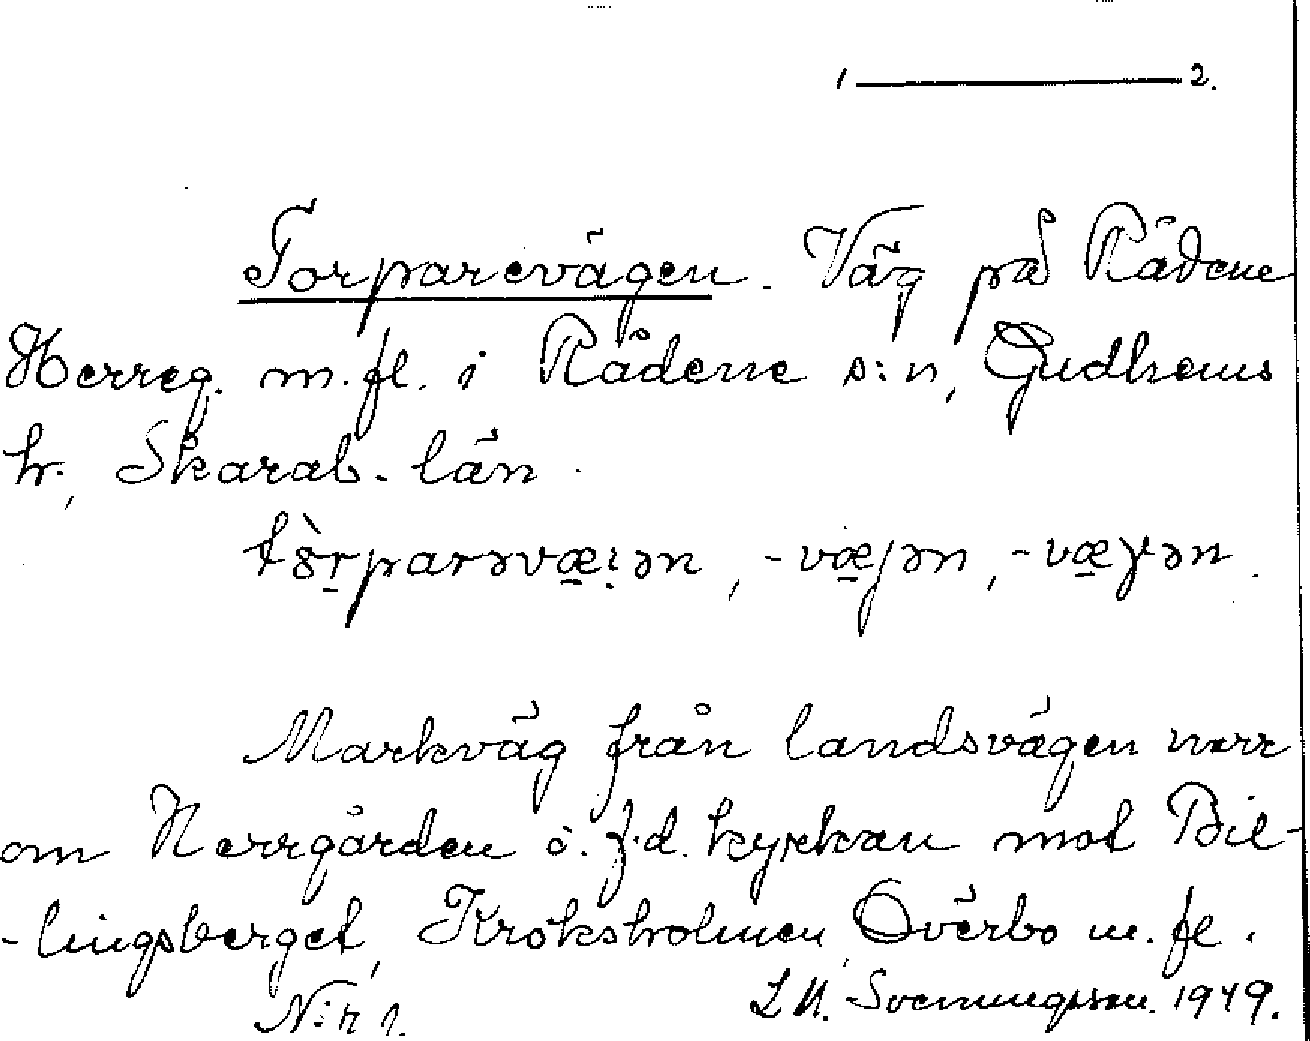 1 ——— 2.
Torparevägen. Väg på Rådene
Herreg. m.fl. i Rådene s:n, Gudhems
hr., Skarab. län.
tòrparəvæ:ən, -væjən, -væɣən.
Markväg från landsvägen norr
om Herrgården o. f.d. kyrkan mot Bil-
-lingsberget, Kroksholmen, Överbo m. fl.
N:r 1. L M. Svenungsson. 1949.